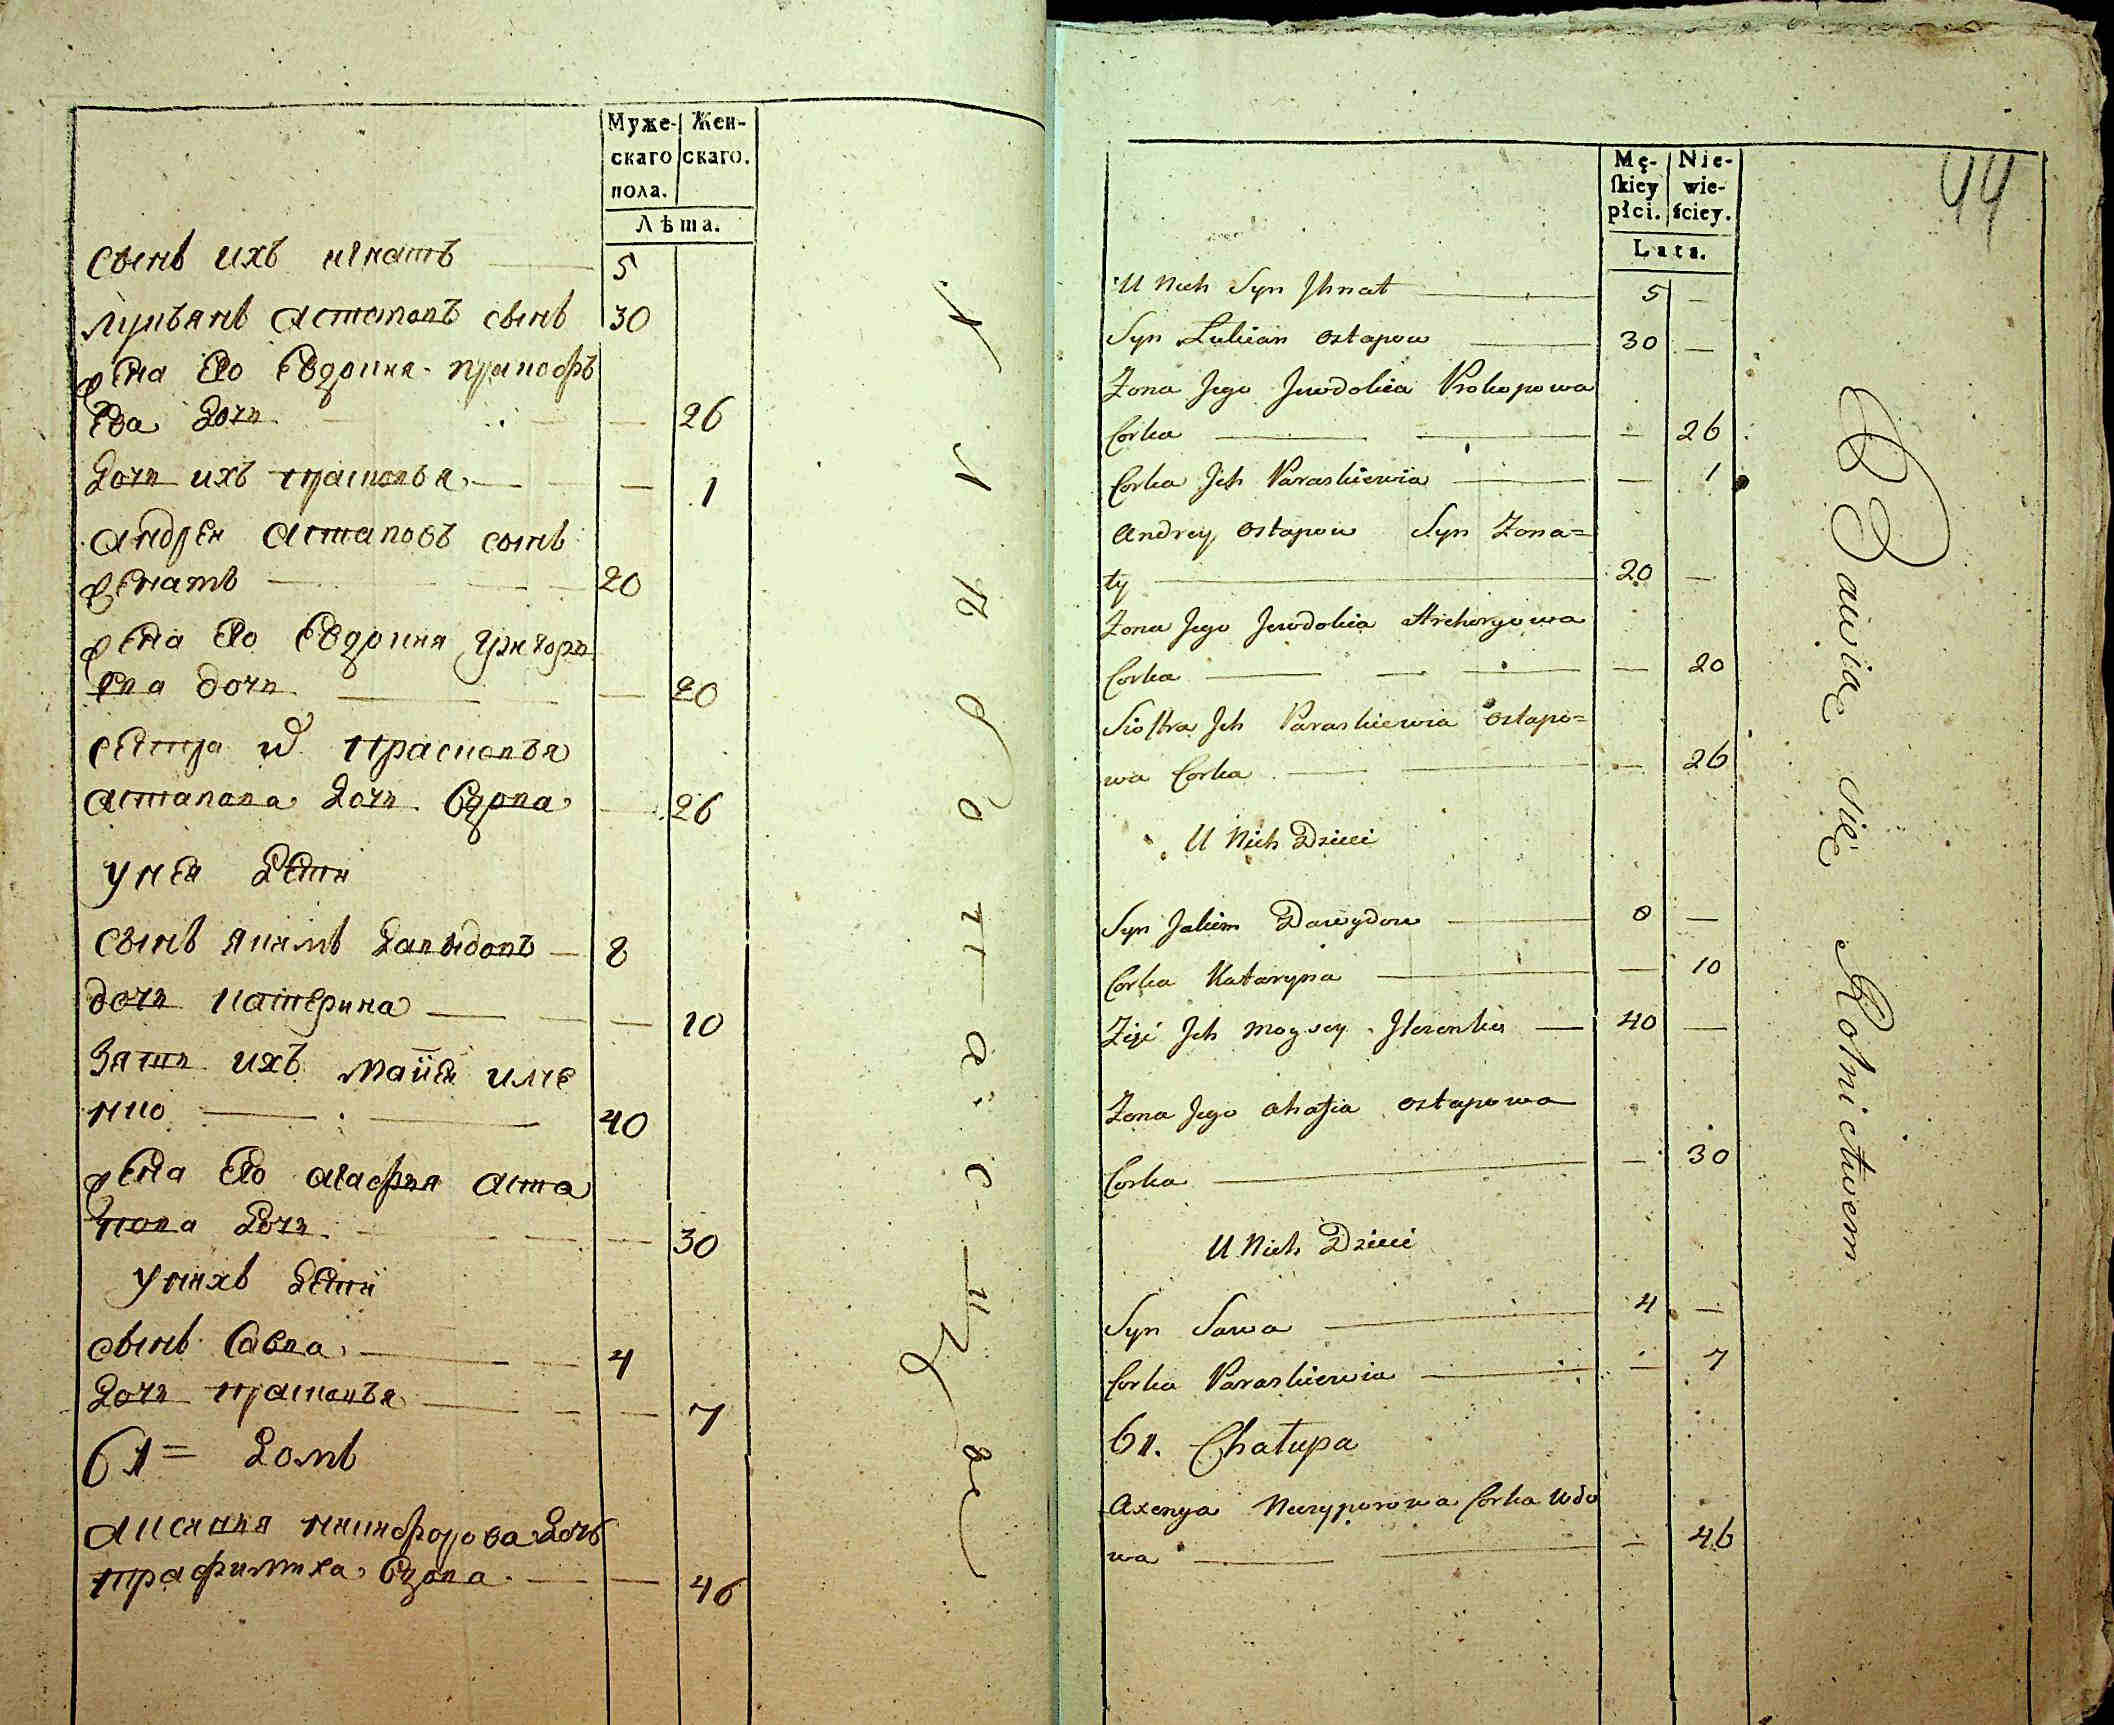 Муже-
скаго
пола.
Жен-
скаго.
Лѣта.
сынъ ихъ игнатъ 5
лукьянъ астаповъ сынъ 30
жена его Евдокия прокофь
ева дочь 26
дочь ихъ прасковья 1
андрей астаповъ сынъ
женатъ 20
жена его Евдокия григорь
ева дочь 20
сестра их прасковья
астапова дочь вдова 26
у нея дети
сынъ якимъ давыдовъ 8
дочь катерина 10
зять ихъ моисей илче
нко 40
жена его агафия аста
пова дочь 30
у нихъ дети
сынъ савва 4
дочь прасковья 7
61 = домъ
аксиния никифорова дочь
трафимиха вдова 46
Mę-
skiey
płci.
Nie-
wie-
ściey.
Lata.
44
U Nich Syn Jhnat 5 —
Syn Lukian Ostapow 30 —
Zona Jego Jewdokia Prokopowa
Corka — 26
Corka Jch Paraskiewia — 1
Andrey Ostapow Syn Zona=
ty 20 —
Zona Jego Jewdokia Hrehorgowa
Corka — 20
Siostra Jch Paraskiewia Ostapo=
wa Corka — 26
U Nich Dzieci
Syn Jakim Dawydow 8 —
Corka Kataryna — 10
Zięć Jch Moysey Jlczenko 40 —
Zona Jego Ahafia Ostapowa
Corka — 30
U Nich Dzieci
Syn Sawa 4 —
Corka Paraskiewia — 7
61. Chałupa
Axenya Neczyporowa Corka Wdo
wa — 46
Bawią się Rolnictwem